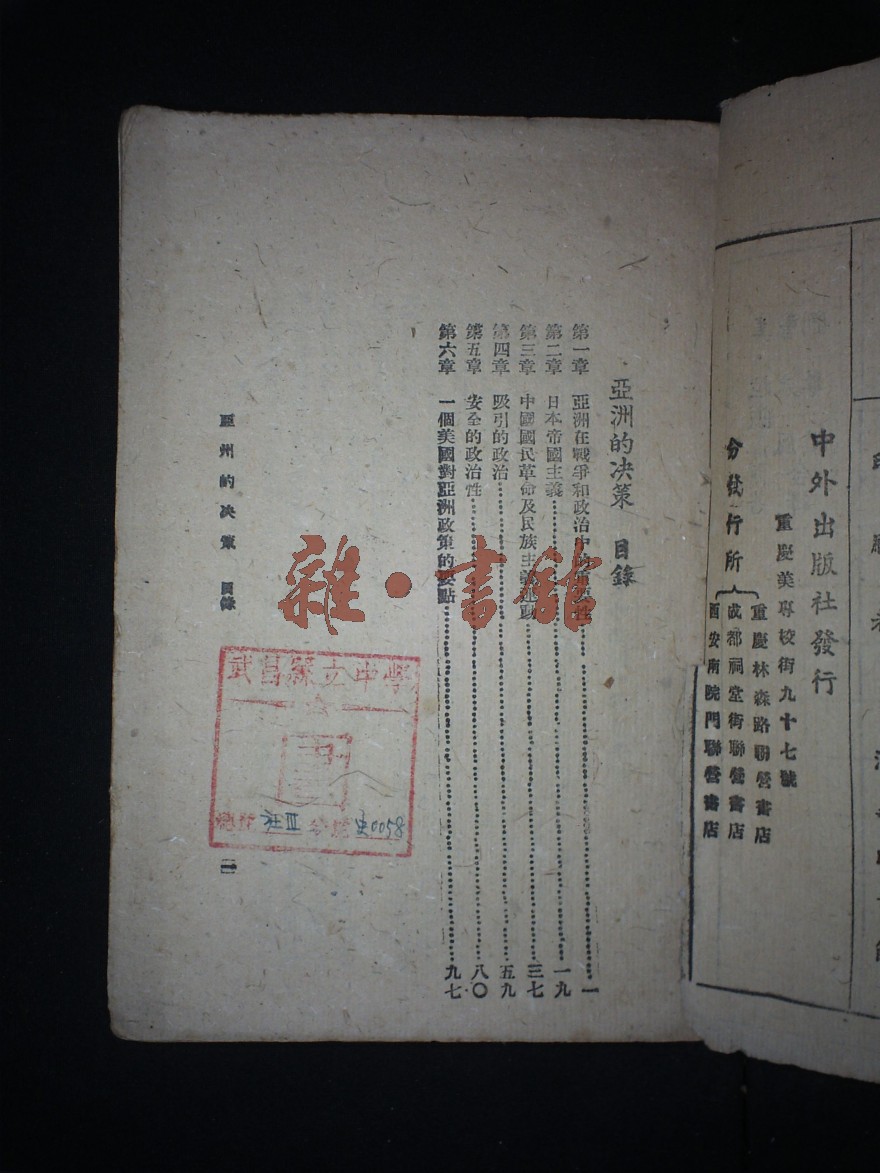 中外出版社發行
重慶美專校街九十七號
分發行所
重慶林森路聯營書店
成都祠堂街聯營書店
西安南院門聯營書店
亞洲的決策 目錄
第一章 亞洲在戰爭和政治中的重要性 一
第二章 日本帝國主義 一九
第三章 中國國民革命及民族主義 三七
第四章 吸引的政治 五九
第五章 安全的政治性 八〇
第六章 一個美國對亞洲政策的要點 九七
亞州的決策 目錄
二
武昌縣立中學
社III
史0058
雜·書館